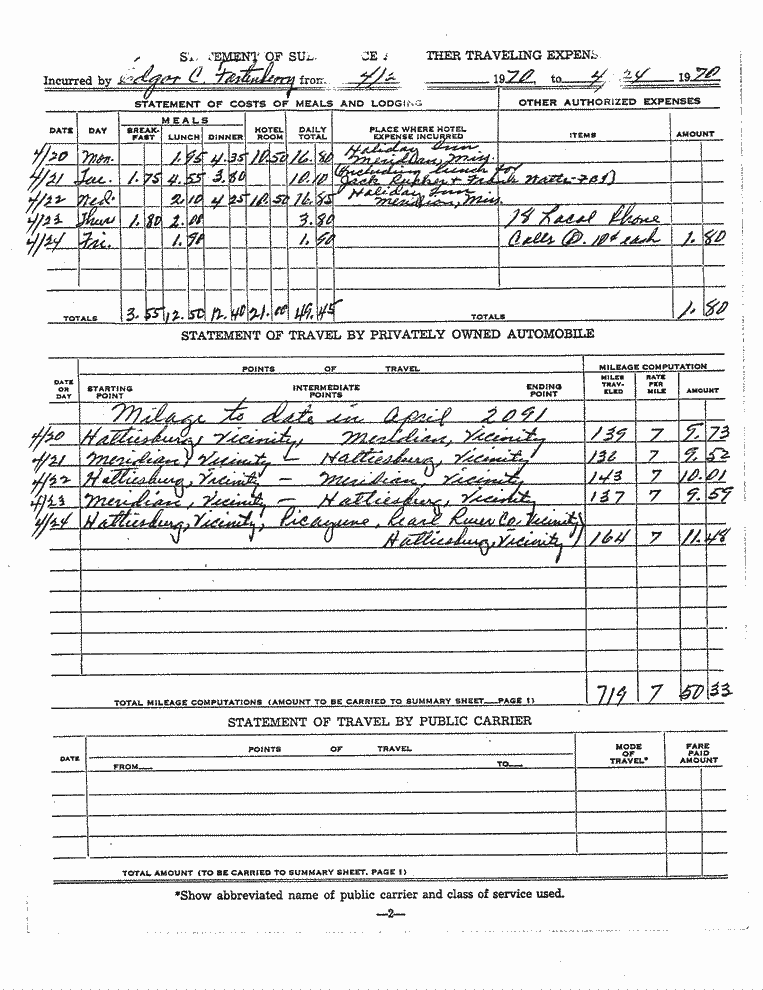 STATEMENT OF SU CE THER TRAVELING EXPENS
Incurred by Edgar C. Fortenberry from 4/2 1970, to 4 24 1970
STATEMENT OF COSTS OF MEALS AND LODGING OTHER AUTHORIZED EXPENSES
MEALS
DATE DAY BREAK-FAST LUNCH DINNER HOTEL ROOM DAILY TOTAL PLACE WHERE HOTEL EXPENSE INCURRED ITEMS AMOUNT
4/20 Mon. 1.95 4.35 10.50 16.80 Holiday Inn Meridian, Miss.
4/21 Tue. 1.75 4.55 3.80 10.10 (Including lunch for Jack + Frank Watts-FBI)
4/22 Wed. 2.10 4.25 10.50 16.85 Holiday Inn Meridian, Miss.
4/23 Thur 1.80 2.00 3.80 18 Local Phone
4/24 Fri. 1.90 1.90 Calls @ 10¢ each 1.80
TOTALS 3.55 12.50 12.40 21.00 49.45 TOTALS 1.80
STATEMENT OF TRAVEL BY PRIVATELY OWNED AUTOMOBILE
POINTS OF TRAVEL MILEAGE COMPUTATION
DATE OR DAY STARTING POINT INTERMEDIATE POINTS ENDING POINT MILES TRAV-ELED RATE PER MILE AMOUNT
Milage to date in April 2091
4/20 Hattiesburg, Vicinity, Meridian, Vicinity 139 7 9.73
4/21 Meridian, Vicinity - Hattiesburg, Vicinity 136 7 9.52
4/22 Hattiesburg, Vicinity - Meridian, Vicinity 143 7 10.01
4/23 Meridian, Vicinity - Hattiesburg, Vicinity 137 7 9.59
4/24 Hattiesburg, Vicinity, Picayune, Pearl River Co. Vicinity
Hattiesburg, Vicinity 164 7 11.48
TOTAL MILEAGE COMPUTATIONS (AMOUNT TO BE CARRIED TO SUMMARY SHEET—PAGE 1) 719 7 50 33
STATEMENT OF TRAVEL BY PUBLIC CARRIER
DATE POINTS OF TRAVEL MODE OF TRAVEL* FARE PAID AMOUNT
FROM— TO—
TOTAL AMOUNT (TO BE CARRIED TO SUMMARY SHEET, PAGE 1)
*Show abbreviated name of public carrier and class of service used.
—2—